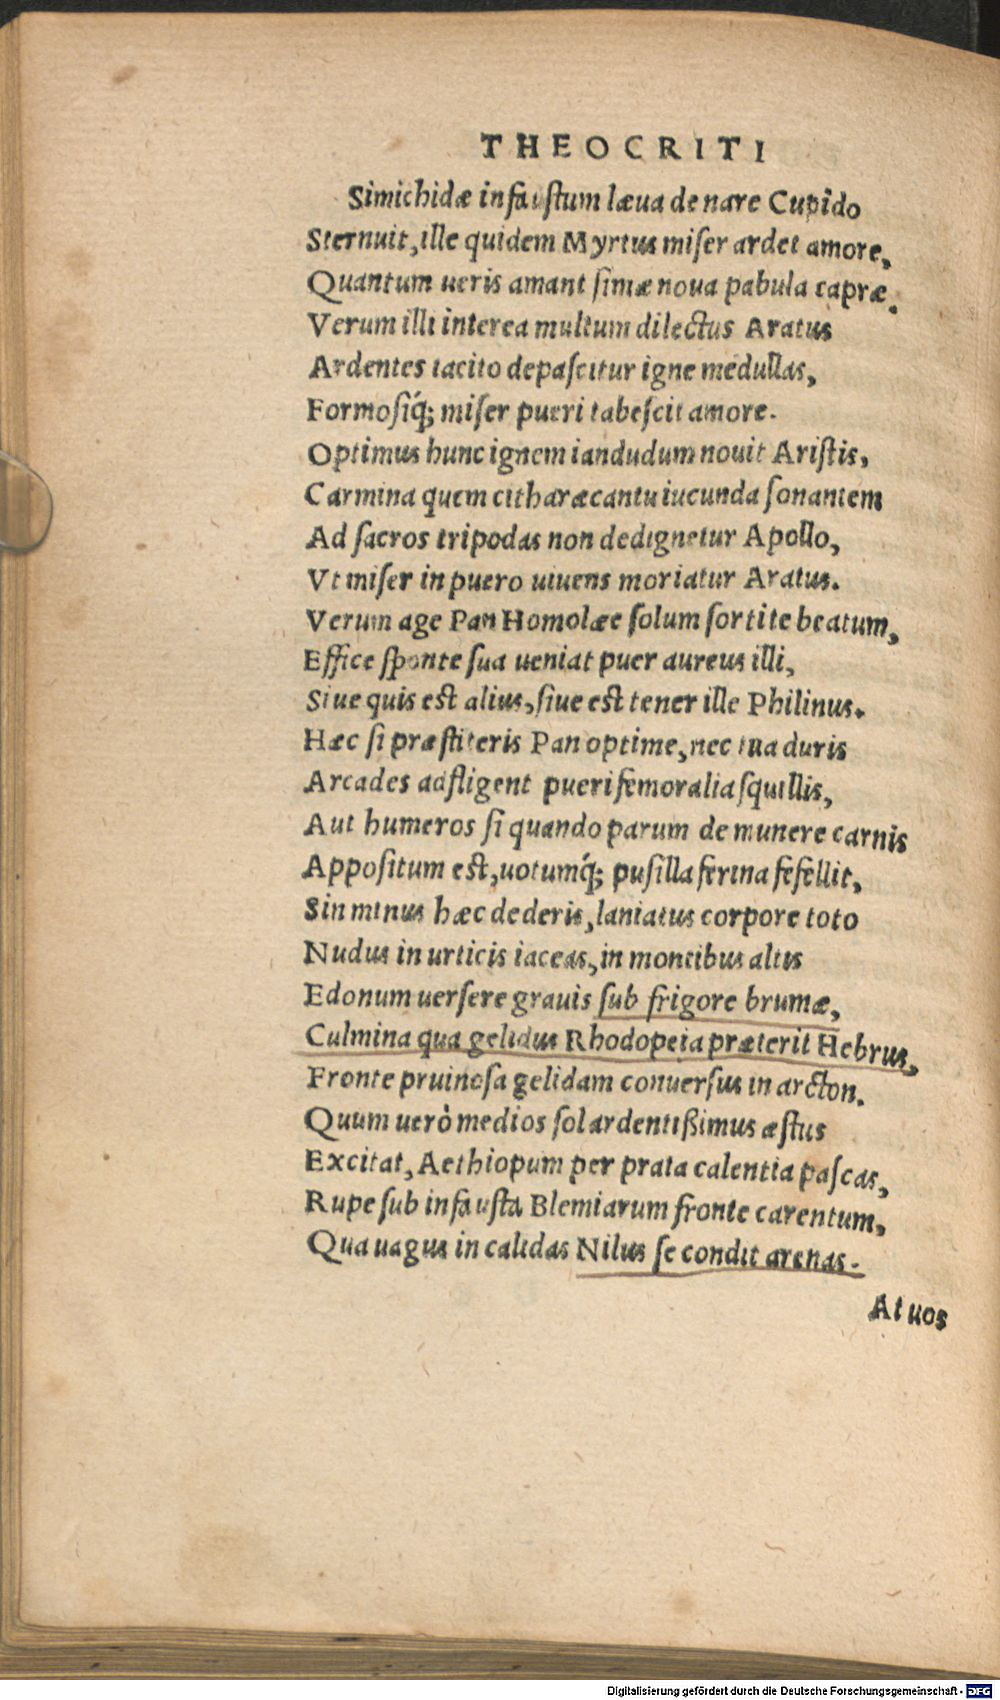 THEOCRITI
Simichidæ infaustum læua de nare Cupido
Sternuit, ille quidem Myrtus miſer ardet amore,
Quantum ueris amant ſimæ noua pabula capræ.
Verum illi interea multum dilectus Aratus
Ardentes tacito depaſcitur igne medullas,
Formoſiq́; miſer pueri tabeſcit amore.
Optimus hunc ignem iandudum nouit Ariſtis,
Carmina quem citharæ cantu iucunda ſonantem
Ad ſacros tripodas non dedignetur Apollo,
Vt miſer in puero uiuens moriatur Aratus.
Verum age Pan Homolæe ſolum ſortite beatum,
Effice ſponte ſua ueniat puer aureus illi,
Siue quis est alius, ſiue est tener ille Philinus.
Hæc ſi præſtiteris Pan optime, nec tua duris
Arcades adfligent pueri femoralia ſquillis,
Aut humeros ſi quando parum de munere carnis
Appoſitum est, uotumq́; puſilla ferina fefellit,
Sin minus hæc dederis, laniatus corpore toto
Nudus in urticis iaceas, in montibus altis
Edonum uerſere grauis ſub frigore brumæ,
Culmina qua gelidus Rhodopeia præterit Hebrus,
Fronte pruinoſa gelidam conuerſus in arcton.
Quum uerò medios ſol ardentißimus æſtus
Excitat, Aethiopum per prata calentia paſcas,
Rupe ſub infausta Blemiarum fronte carentum,
Qua uagus in calidas Nilus ſe condit arenas.
At uos
Digitalisierung gefördert durch die Deutsche Forschungsgemeinschaft - DFG